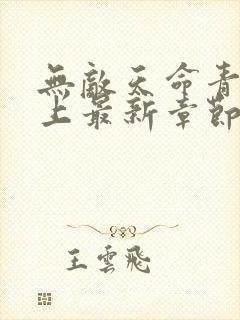 無敵天命青
上最新章節
王雲飛